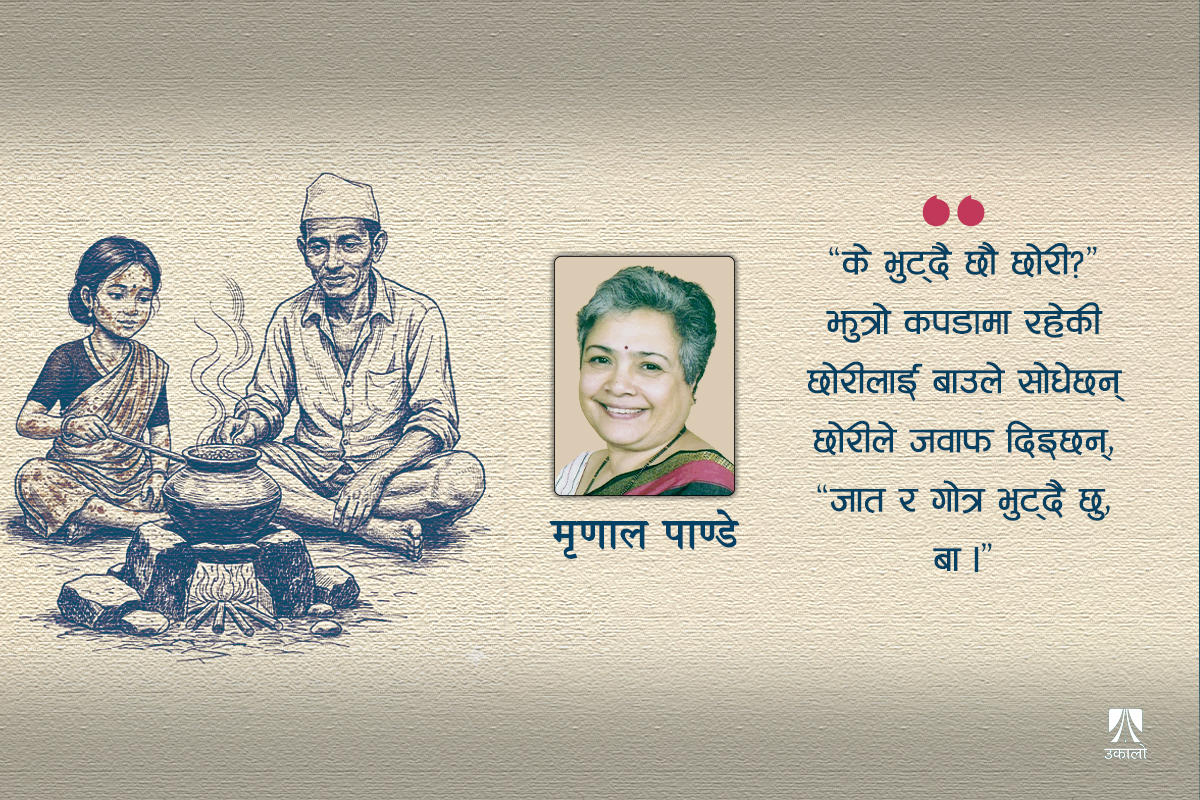 “के भुट्दै छौ छोरी?”
झुत्रो कपडामा रहेकी
छोरीलाई बाउले सोधेछन्
छोरीले जवाफ दिइछन्,
“जात र गोत्र भुट्दै छु,
बा ।”
मृणाल पाण्डे
उकालो